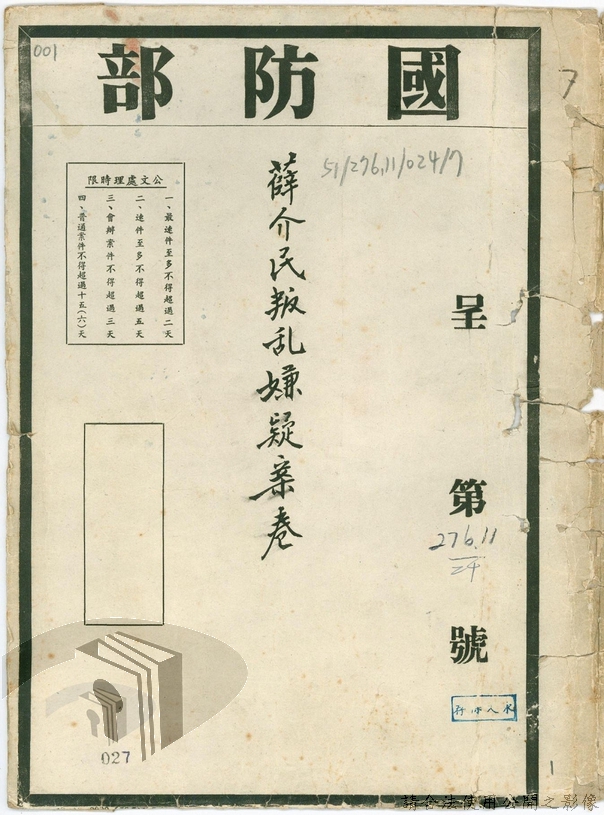 001
國防部
7
51/276.11/024/7
呈第號
276.11
24
薛介民叛乱嫌疑案卷
公文處理時限
一、最速件至多不得超過二天
二、速件至多不得超過五天
三、會辦案件不得超過三天
四、普通案件不得超過十五(六)天
027
1
請合法使用公開之影像